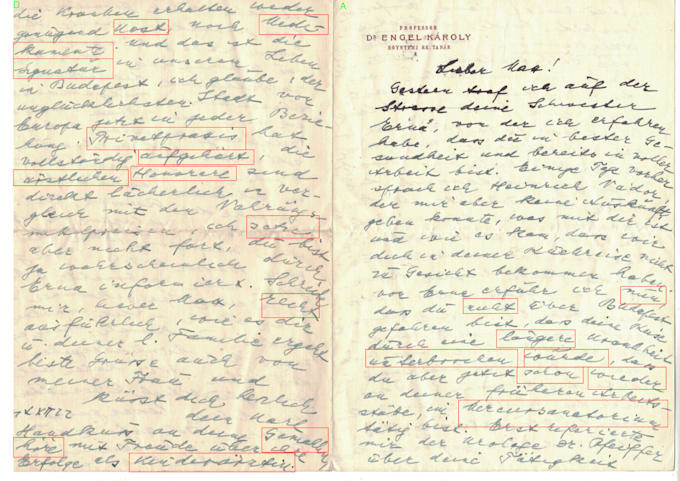 D
die Kranken erhalten weder
genügend Kost, noch Medi-
kamente und das ist die
Signatur in unseren Leben
in Budapest, ich glaube, der
unglücklichsten Stadt von
Europa jetzt in jeder Bezie-
hung. Privatpraxis hat
vollständig aufgehört, die
ärztlichen Honorare sind
direkt lächerlich in ver-
gleich mit den
ich
aber nicht fort, du bist
ja wahrscheinlich durch
Erna informiert. Schreib
mir, lieber Max, recht
ausführlich, wie es dir
u. deiner l. Familie ergeht
beste Grüsse auch von
meiner Frau und
küsst dich herzlich
dein Karl
Handkuss an deine Gemahlin
mit Freude über ihre
Erfolge als Kinderärztin.
A
PROFESSOR
DR ENGEL KÁROLY
EGYETEMI RK. TANÁR
Lieber Max!
Gestern traf ich auf der
Strasse deine Schwester
Erna, von der ich erfahren
habe, dass du in bester Ge-
sundheit und bereits in voller
Arbeit bist. Einige Tage vorher
sprach ich Heinrich
der mir aber keine Auskunft
geben konnte, was mit dir ist
und wie es kam, dass wir
dich in deiner Rückreise nicht
zu Gesicht bekommen haben.
von Erna erfuhr ich nun
dass du nicht über Budapest
gefahren bist, dass deine Reise
durch eine längere Krankheit
unterbrochen wurde, dass
du aber jetzt schon wieder
an deiner früheren Arbeits-
stätte, im Hercussanatorium
tätig bist. Erst referierte
mir der Urologe Dr. Pfeiffer
über deine Tätigkeit